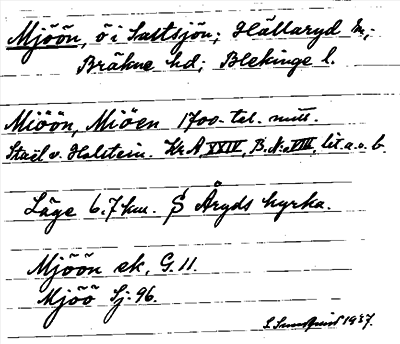 Mjöön, ö i Saltsjön; Hällaryd sn;
Bräkne hd; Blekinge l.
Miöön, Miöen 1700-tal. mitt.
Staël v. Holstein. Kr A, XXIV, B. N:o VIII, lit. a. o. b.
Läge 6.7 km. S Åryds kyrka.
Mjöön ek, G. 11.
Mjöö Sj: 96.
S Sundquist 1937.